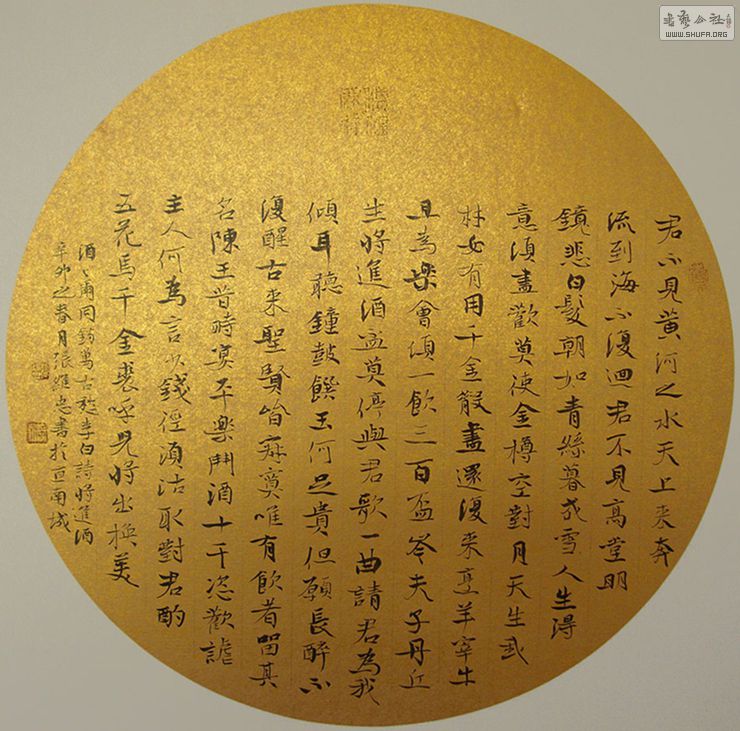 君不見黃河之水天上來奔
流到海不復迴君不見高堂明
鏡悲白髮朝如青絲暮成雪人生得
意須盡歡莫使金樽空對月天生我
材必有用千金散盡還復來烹羊宰牛
且為樂會須一飲三百盃岑夫子丹丘
生將進酒盃莫停與君歌一曲請君為我
傾耳聽鐘鼓饌玉何足貴但願長醉不
復醒古來聖賢皆寂寞唯有飲者留其
名陳王昔時宴平樂鬥酒十千恣歡謔
主人何為言少錢徑須沽取對君酌
五花馬千金裘呼兒將出換美
酒與爾同銷萬古愁李白詩將進酒
辛卯之春月張維忠書於南城
書藝公社
WWW.SHUFA.ORG